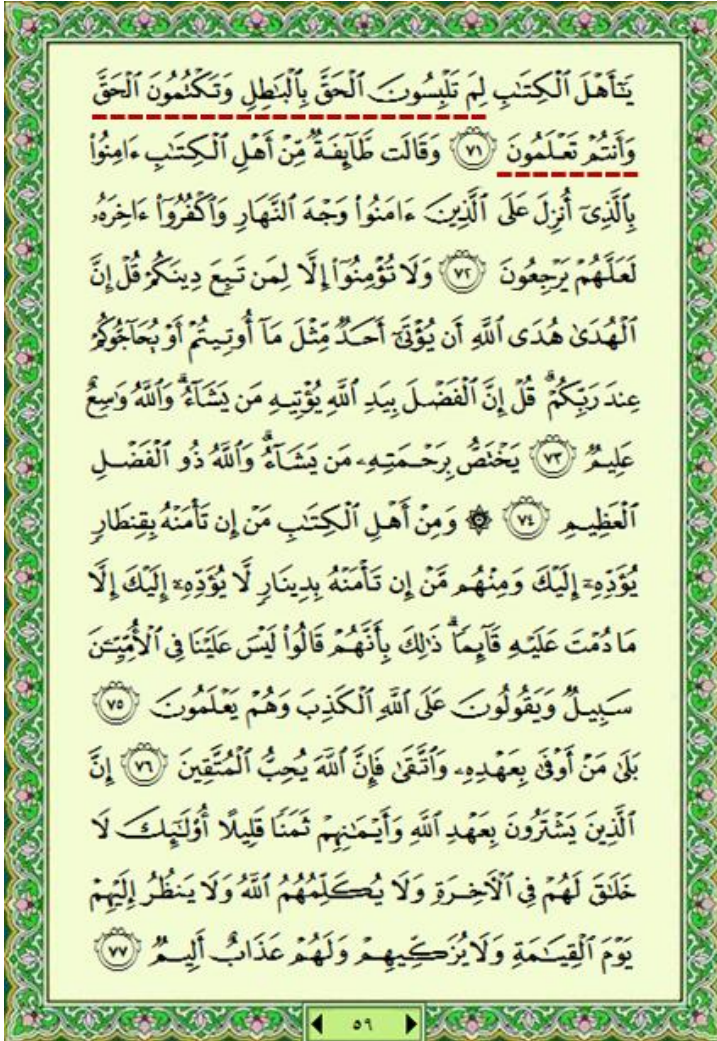 يَٰٓأَهْلَ ٱلْكِتَٰبِ لِمَ تَلْبِسُونَ ٱلْحَقَّ بِٱلْبَٰطِلِ وَتَكْتُمُونَ ٱلْحَقَّ
وَأَنتُمْ تَعْلَمُونَ ٧١ وَقَالَت طَّآئِفَةٌ مِّنْ أَهْلِ ٱلْكِتَٰبِ ءَامِنُوا۟
بِٱلَّذِىٓ أُنزِلَ عَلَى ٱلَّذِينَ ءَامَنُوا۟ وَجْهَ ٱلنَّهَارِ وَٱكْفُرُوٓا۟ ءَاخِرَهُۥ
لَعَلَّهُمْ يَرْجِعُونَ ٧٢ وَلَا تُؤْمِنُوٓا۟ إِلَّا لِمَن تَبِعَ دِينَكُمْ قُلْ إِنَّ
ٱلْهُدَىٰ هُدَى ٱللَّهِ أَن يُؤْتَىٰٓ أَحَدٌ مِّثْلَ مَآ أُوتِيتُمْ أَوْ يُحَآجُّوكُمْ
عِندَ رَبِّكُمْ ۗ قُلْ إِنَّ ٱلْفَضْلَ بِيَدِ ٱللَّهِ يُؤْتِيهِ مَن يَشَآءُ ۗ وَٱللَّهُ وَٰسِعٌ
عَلِيمٌ ٧٣ يَخْتَصُّ بِرَحْمَتِهِۦ مَن يَشَآءُ ۗ وَٱللَّهُ ذُو ٱلْفَضْلِ
ٱلْعَظِيمِ ٧٤ ۞ وَمِنْ أَهْلِ ٱلْكِتَٰبِ مَنْ إِن تَأْمَنْهُ بِقِنطَارٍ
يُؤَدِّهِۦٓ إِلَيْكَ وَمِنْهُم مَّنْ إِن تَأْمَنْهُ بِدِينَارٍ لَّا يُؤَدِّهِۦٓ إِلَيْكَ إِلَّا
مَا دُمْتَ عَلَيْهِ قَآئِمًا ۗ ذَٰلِكَ بِأَنَّهُمْ قَالُوا۟ لَيْسَ عَلَيْنَا فِى ٱلْأُمِّيِّۦنَ
سَبِيلٌ وَيَقُولُونَ عَلَى ٱللَّهِ ٱلْكَذِبَ وَهُمْ يَعْلَمُونَ ٧٥
بَلَىٰ مَنْ أَوْفَىٰ بِعَهْدِهِۦ وَٱتَّقَىٰ فَإِنَّ ٱللَّهَ يُحِبُّ ٱلْمُتَّقِينَ ٧٦ إِنَّ
ٱلَّذِينَ يَشْتَرُونَ بِعَهْدِ ٱللَّهِ وَأَيْمَٰنِهِمْ ثَمَنًا قَلِيلًا أُو۟لَٰٓئِكَ لَا
خَلَٰقَ لَهُمْ فِى ٱلْءَاخِرَةِ وَلَا يُكَلِّمُهُمُ ٱللَّهُ وَلَا يَنظُرُ إِلَيْهِمْ
يَوْمَ ٱلْقِيَٰمَةِ وَلَا يُزَكِّيهِمْ وَلَهُمْ عَذَابٌ أَلِيمٌ ٧٧
٥٩